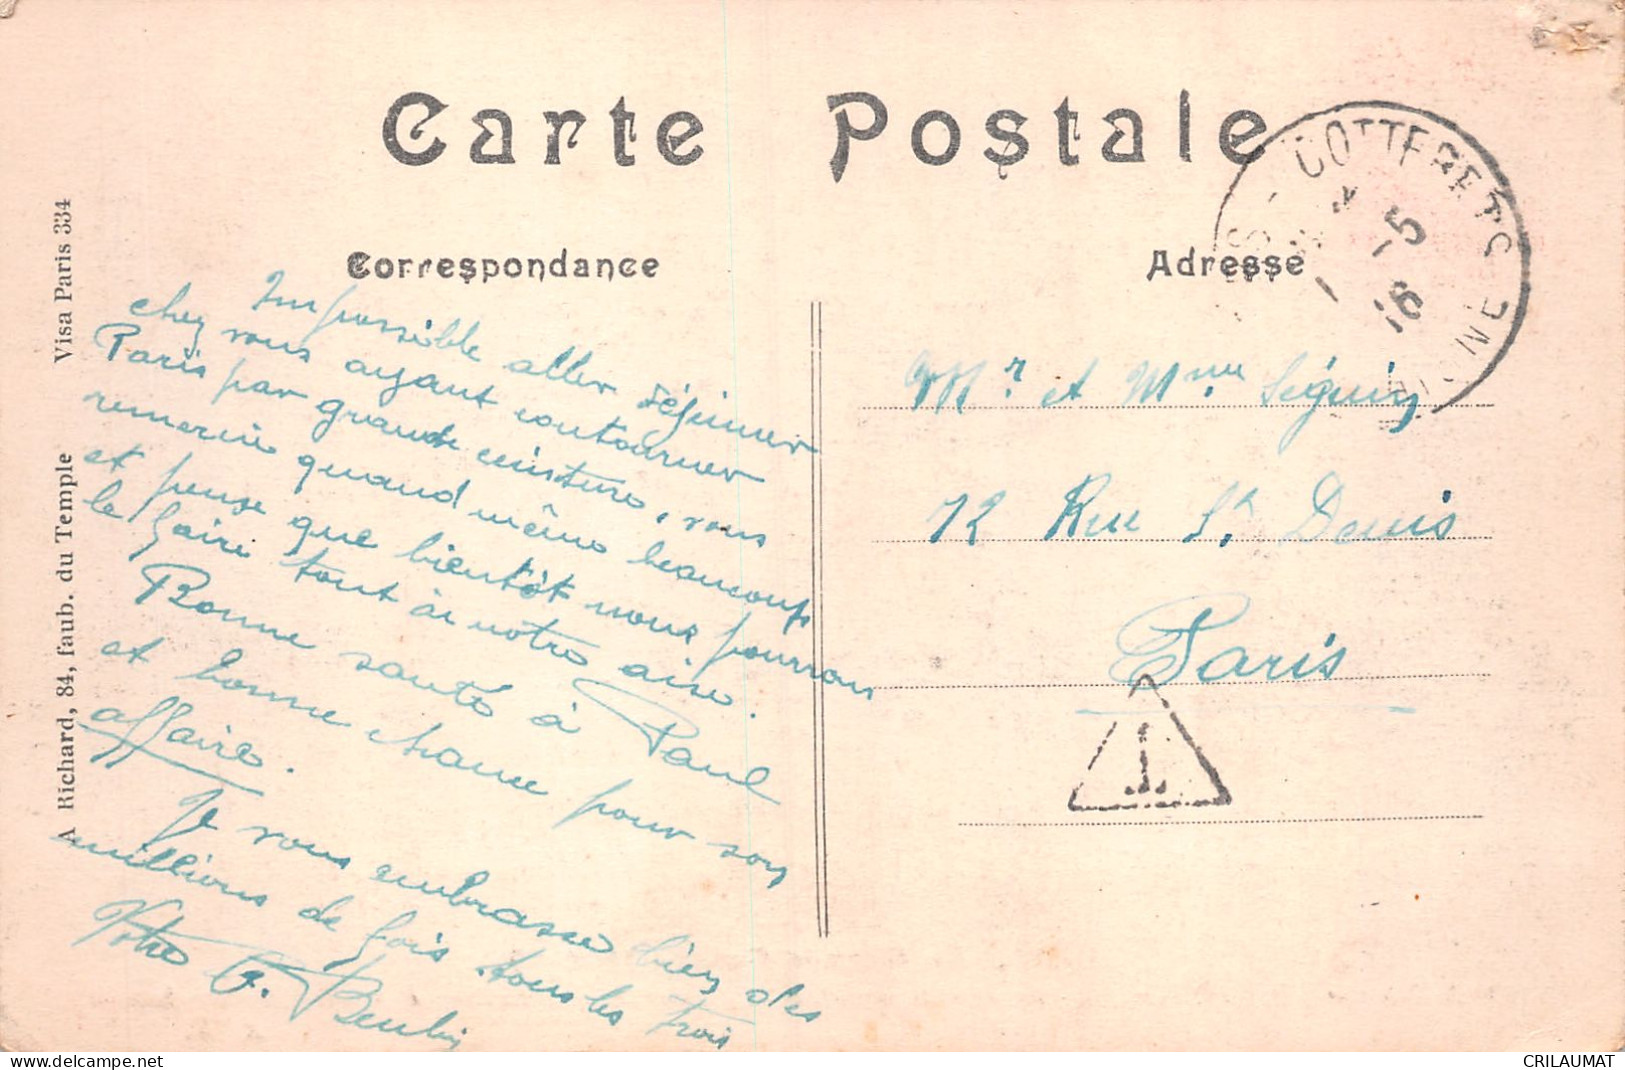 Carte Postale
Correspondance
Adresse
COTTERETS
AISNE
1 -5
16
Impossible aller déjeuner
chez vous ayant contourner
Paris par grande ceinture, vous
remercie quand même beaucoup
et pense que bientôt nous pourrons
le faire tout à notre aise.
Bonne santé à Paul
et bonne chance pour son
affaire.
Je vous embrasse bien des
millions de fois tous les trois
Votre
Mr et Mme Séguin
12 Rue St. Denis
Paris
T
A Richard, 84, faub. du Temple Visa Paris 334
delcampe.net
CRILAUMAT